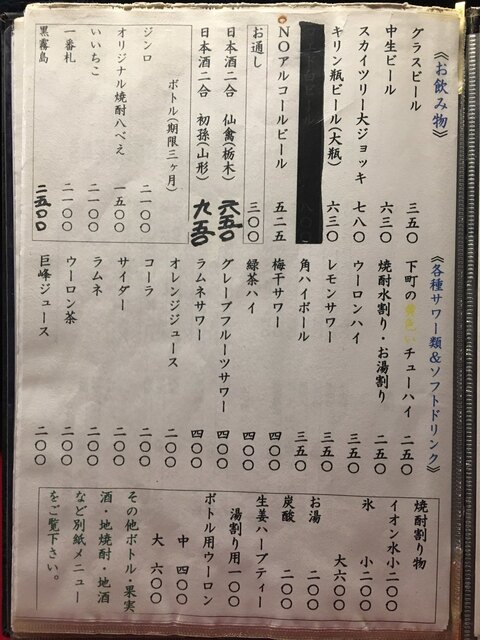 《お飲み物》
グラスビール 三五〇
中生ビール 六三〇
スカイツリー大ジョッキ 七八〇
キリン瓶ビール(大瓶) 六三〇
NOアルコールビール 五二五
お通し 三〇〇
日本酒二合 仙禽(栃木) 六五〇
日本酒二合 初孫(山形) 九五〇
ボトル(期限三ヶ月)
ジンロ 二一〇〇
オリジナル焼酎八べえ 一五〇〇
いいちこ 二一〇〇
一番札 二一〇〇
黒霧島 二五〇〇
《各種サワー類&ソフトドリンク》
下町の黄色いチューハイ 二五〇
焼酎水割り・お湯割り 二五〇
ウーロンハイ 三五〇
レモンサワー 三五〇
角ハイボール 三五〇
梅干サワー 四〇〇
緑茶ハイ 四〇〇
グレープフルーツサワー 四〇〇
ラムネサワー 四〇〇
オレンジジュース 二〇〇
コーラ 二〇〇
サイダー 二〇〇
ラムネ 二〇〇
ウーロン茶 二〇〇
巨峰ジュース 二〇〇
焼酎割り物
イオン水小二〇〇
氷 小二〇〇
大六〇〇
お湯 二〇〇
炭酸 二〇〇
生姜ハーブティー
湯割り用一〇〇
ボトル用ウーロン
中 四〇〇
大 六〇〇
その他ボトル・果実
酒・地焼酎・地酒
など別紙メニュー
をご覧下さい。